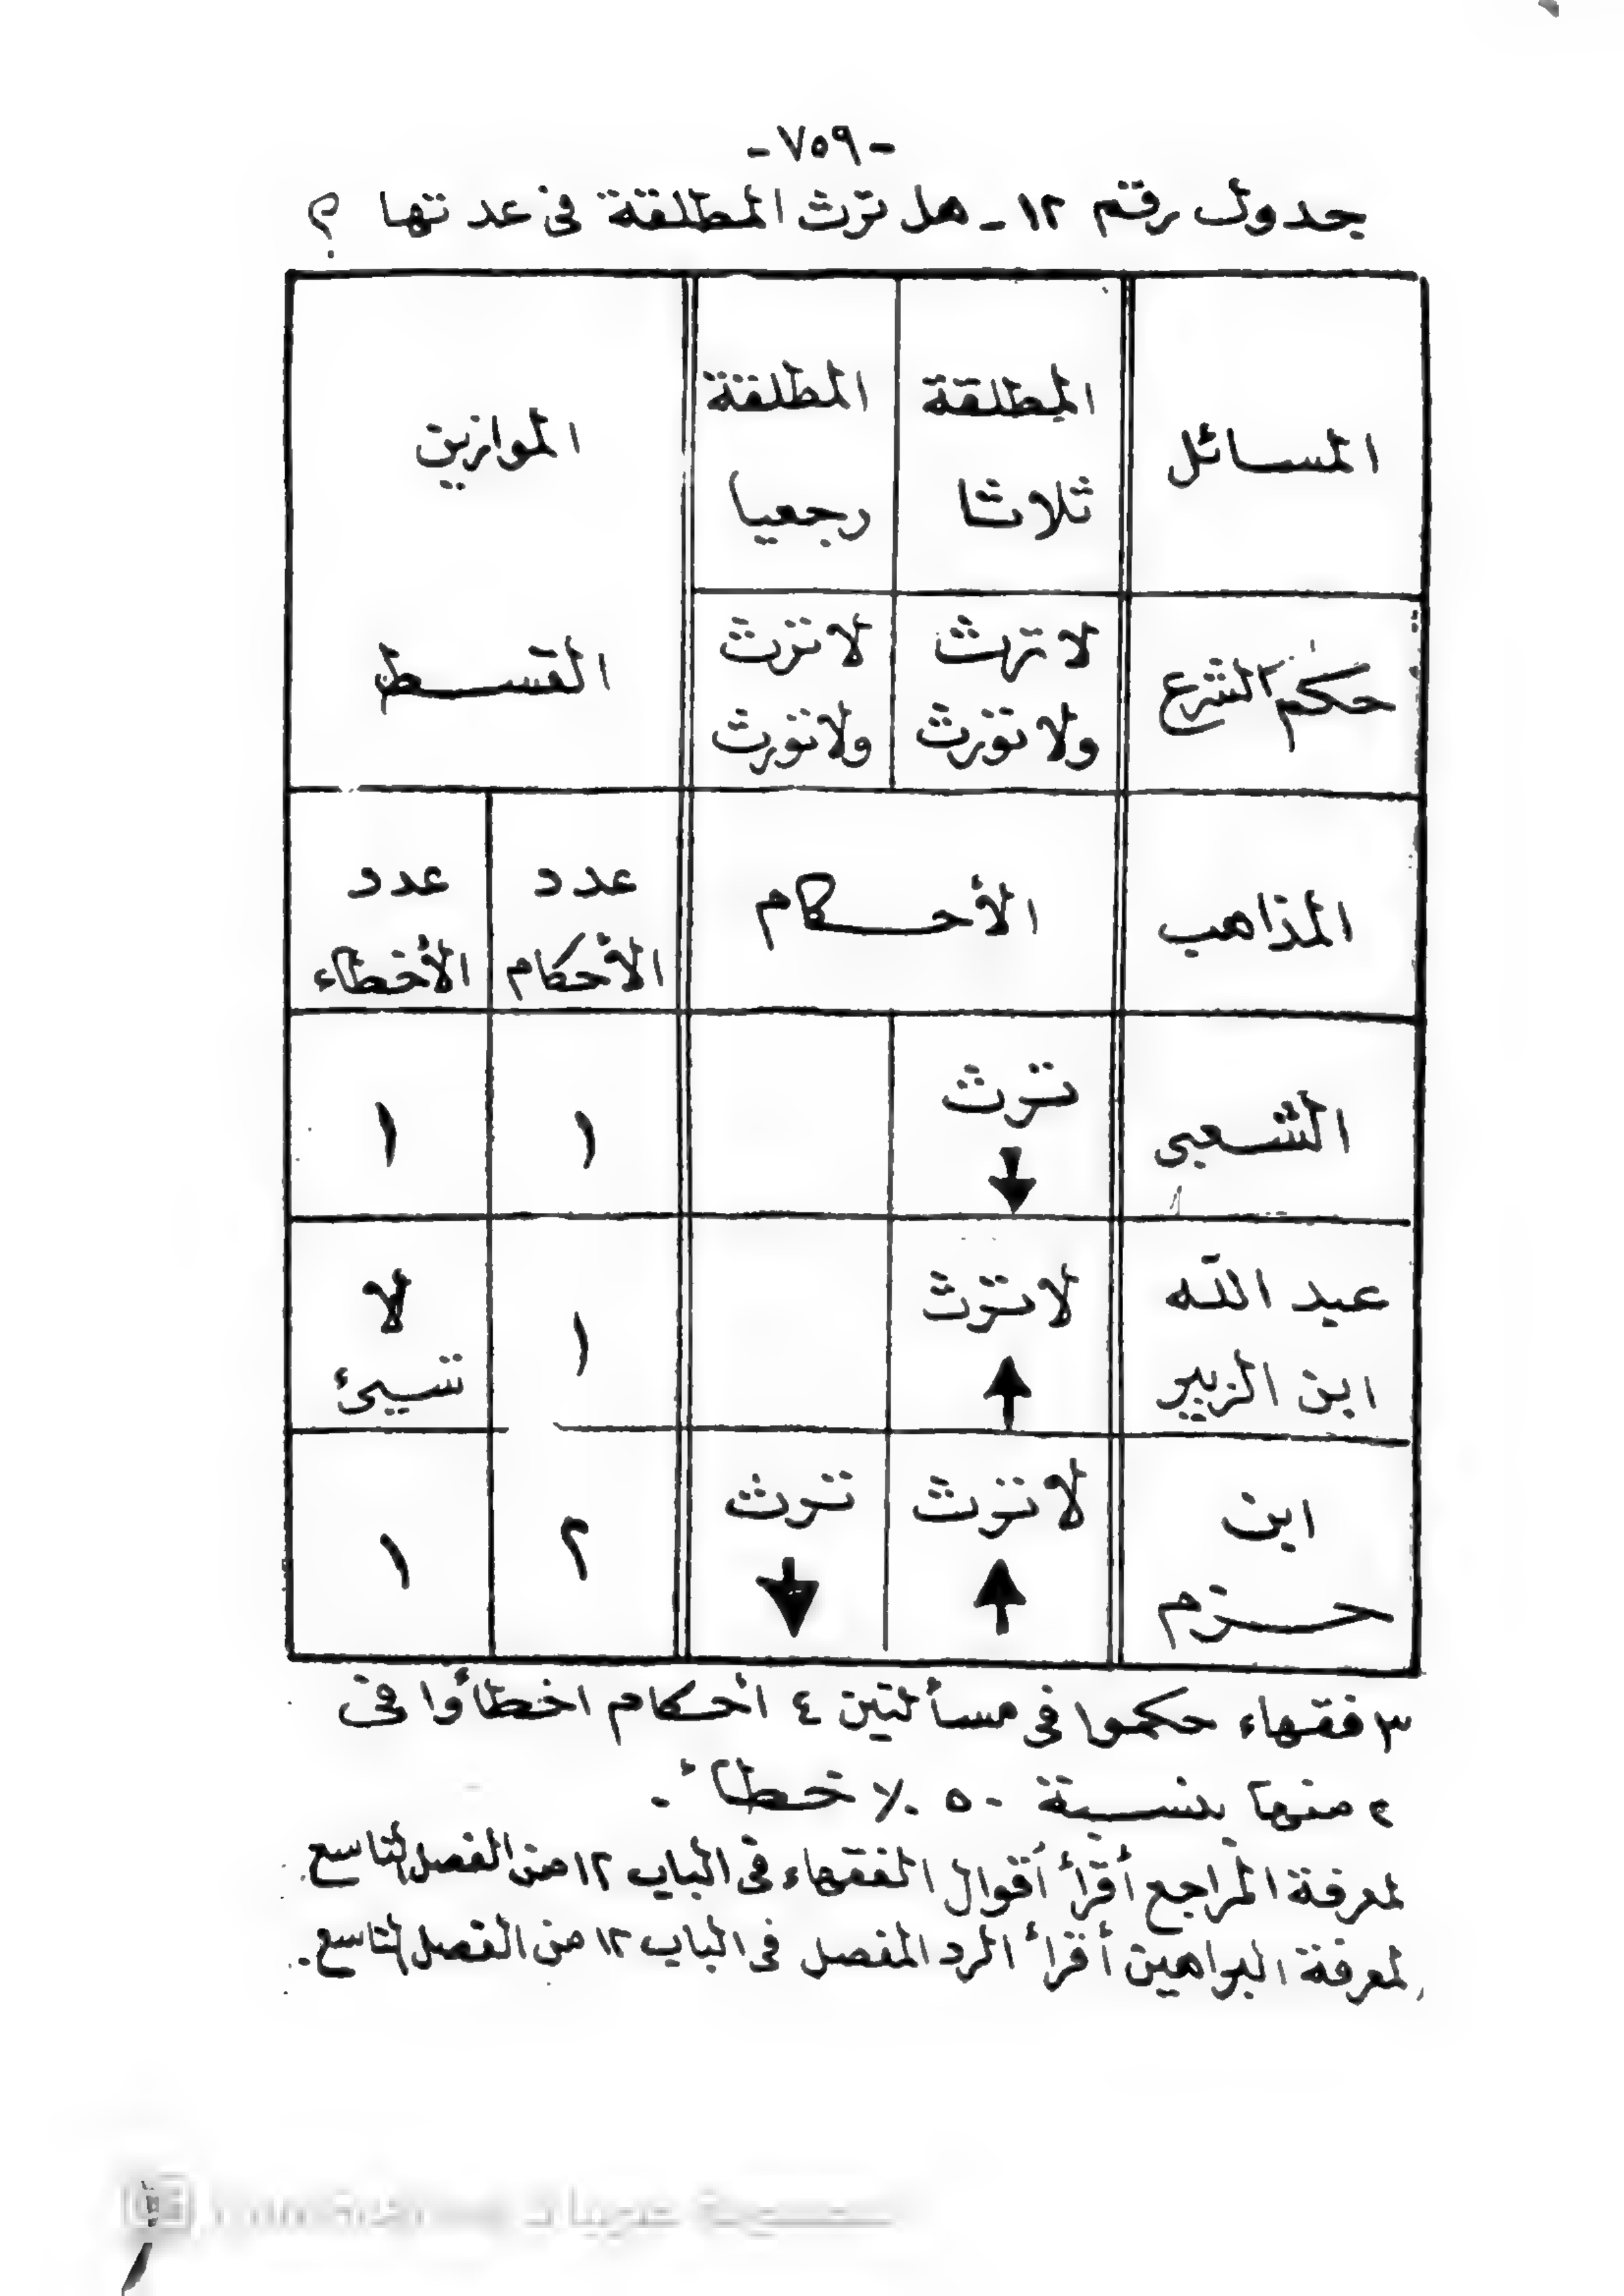 -٧٥٩-
جدول رقم ١٢ - هل ترث المطلقة فى عدتها ؟
المسائل
المطلقة
ثلاثا
المطلقة
رجعيا
الموازين
حكم الشرع
لا ترث
ولا تورث
لا ترث
ولا تورث
القسط
المذاهب
الأحكام
عدد
الأحكام
عدد
الأخطاء
الشعبى
ترث
١
١
عبد الله
ابن الزبير
لا ترث
١
لا
شيئ
ابن
حزم
لا ترث
ترث
٢
١
٣ فقهاء حكموا فى مسألتين ٤ أحكام اخطأوا فى
٢ منها بنسبة ٥٠ ٪ خطأ .
لمعرفة المراجع أقرأ أقوال الفقهاء فى الباب ١٢ من الفصل التاسع .
لمعرفة البراهين أقرأ الرد المفصل فى الباب ١٢ من الفصل التاسع .